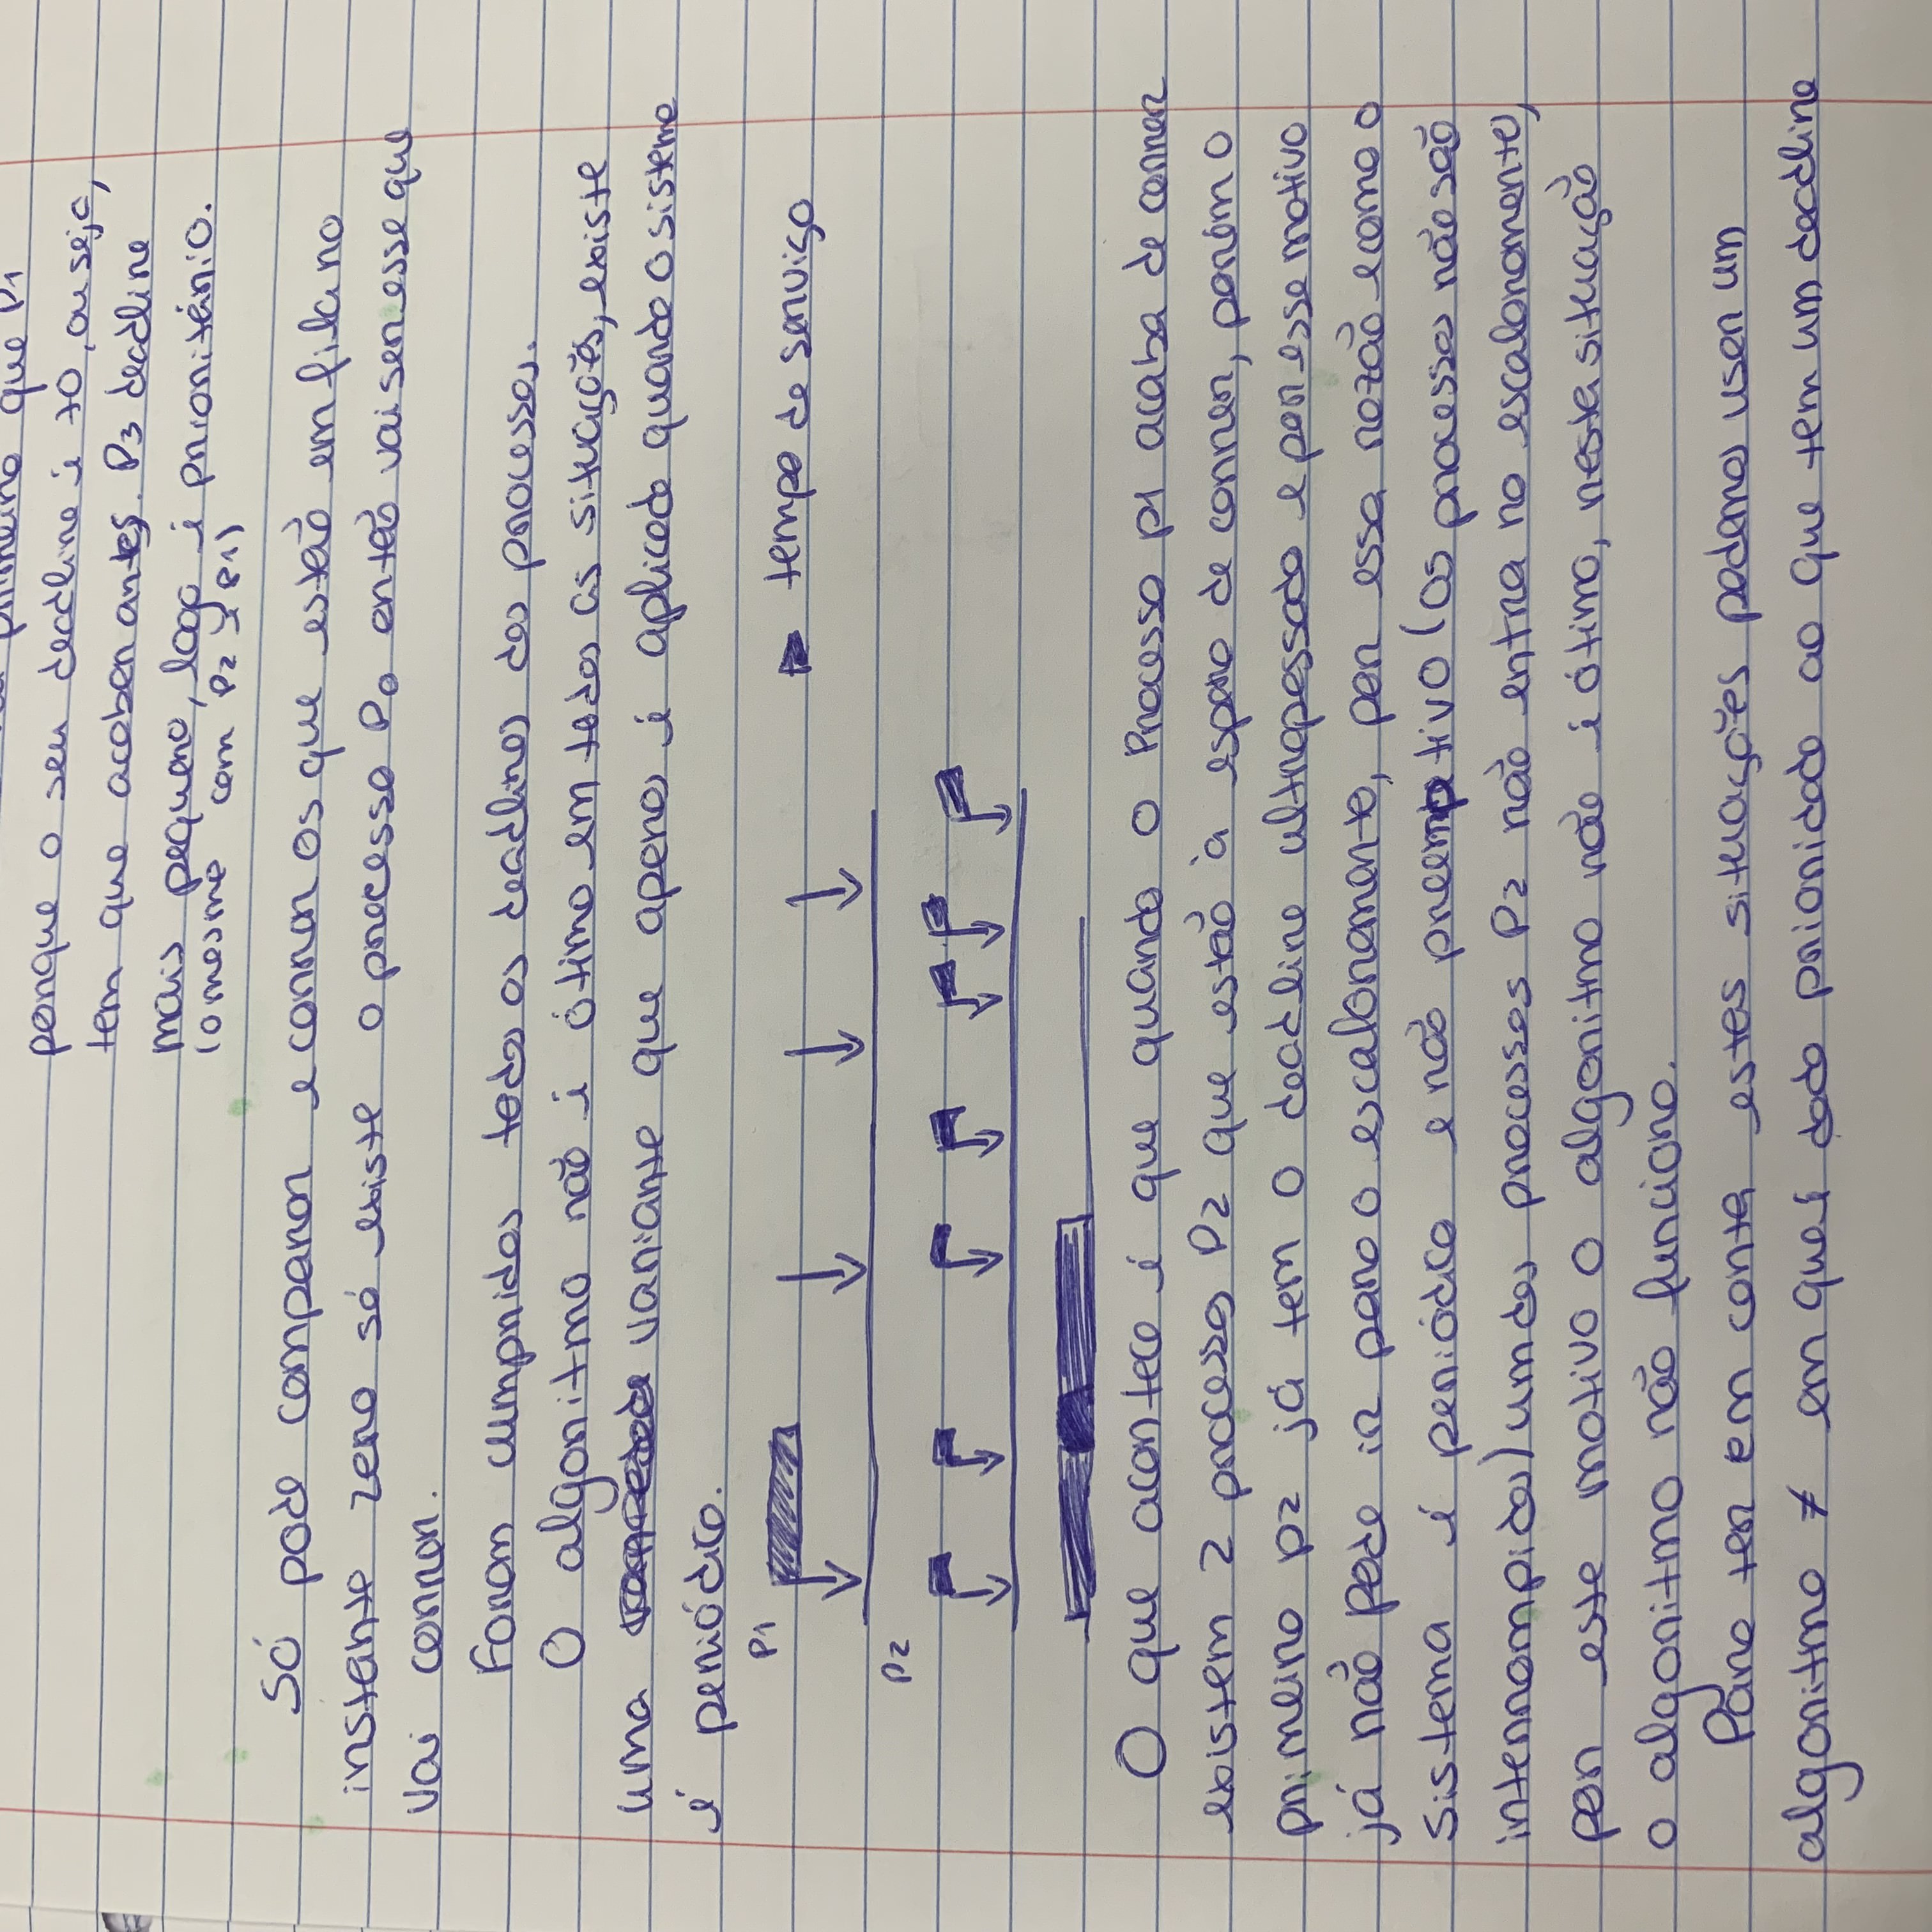 primeiro que P1
porque o seu deadline é 70, ou seja,
tem que acabar antes. P3 deadline
mais pequeno, logo é prioritário.
(o mesmo com P2 e P1)
Só pode comparar e correr os que estão em fila no
instante zero só existe o processo P0 então vai ser esse que
vai correr.
Foram cumpridos todos os deadlines dos processos.
O algoritmo não é ótimo em todas as situações, existe
uma variante que apenas é aplicado quando o sistema
é periódico.
P1
tempo de serviço
P2
O que acontece é que quando o Processo p1 acaba de correr
existem 2 processos P2 que estão à espera de correr, porém o
primeiro p2 já tem o deadline ultrapassado e por esse motivo
já não pode ir para o escalonamento, por essa razão e como o
sistema é periódico e não preemptivo (os processos não são
interrompidos) um dos processos P2 não entra no escalonamento,
por este motivo o algoritmo não é ótimo, nesta situação
o algoritmo não funciona.
Para ter em conta estas situações podemos usar um
algoritmo ≠ em que é dado prioridade ao que tem um deadline